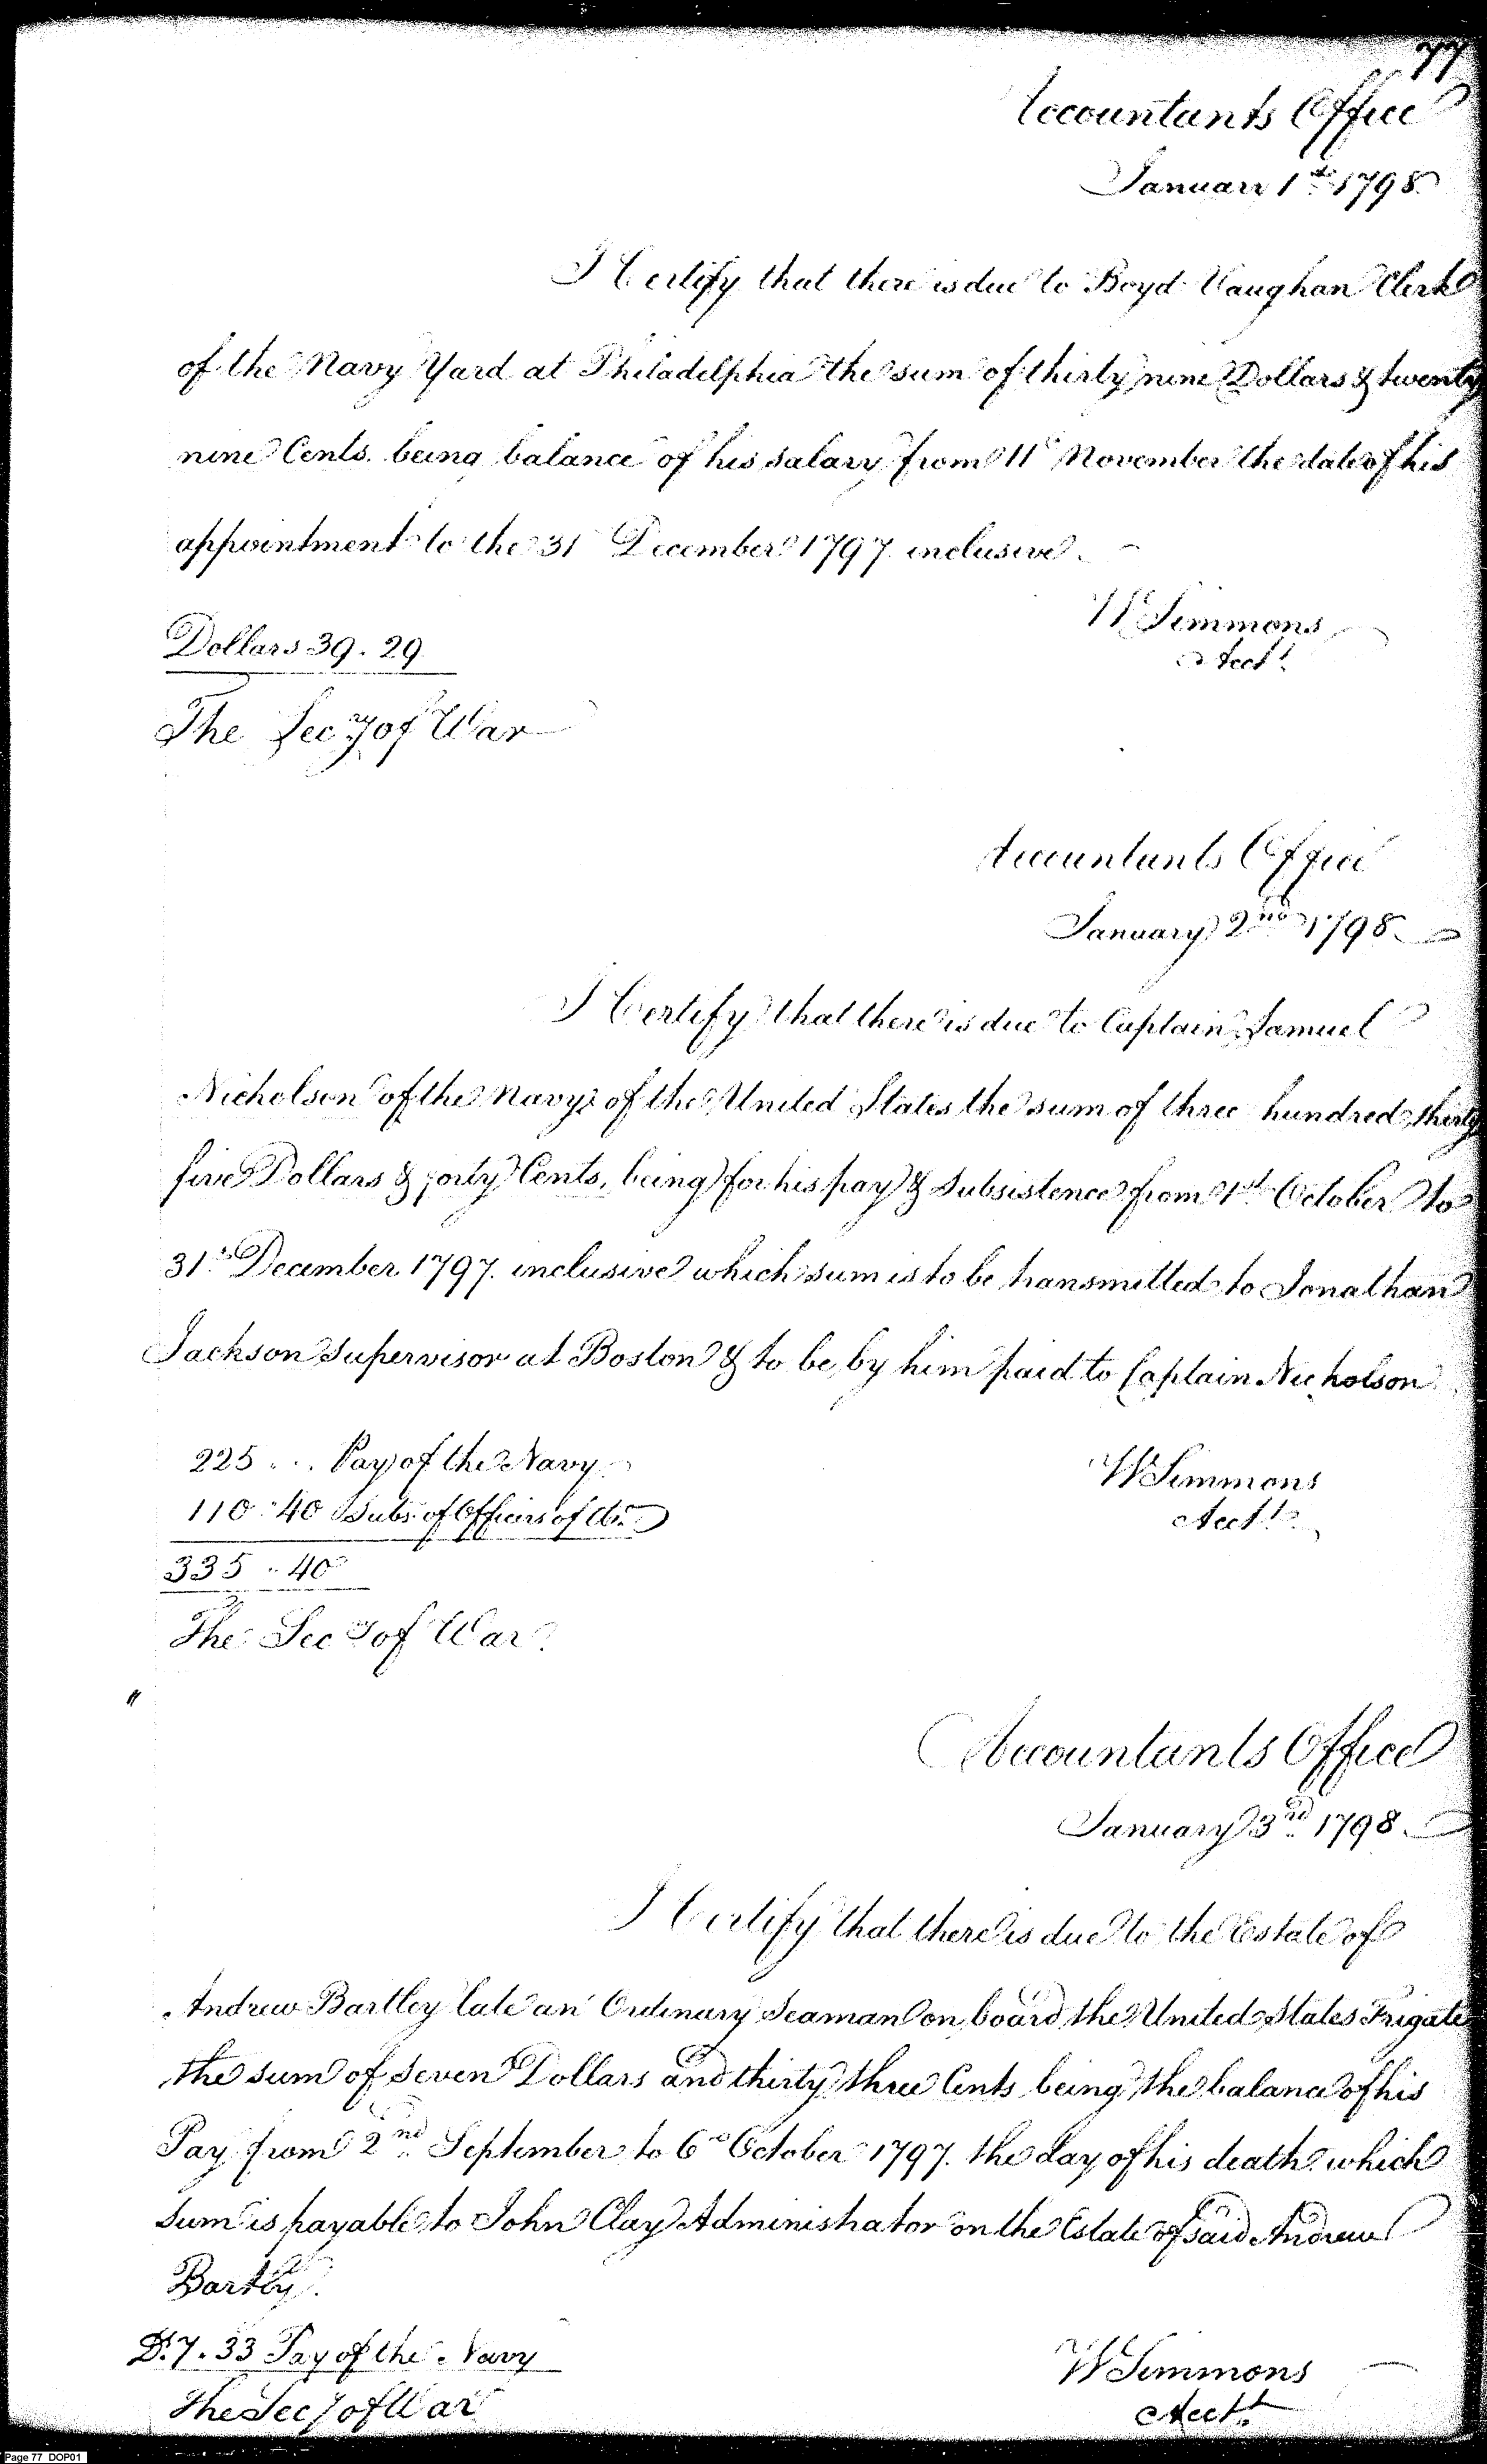 77
Accountants Office
January 1st 1798
I Certify that there is due to Boyd Vaughan Clerk
of the Navy Yard at Philadelphia the sum of thirty nine Dollars & twenty
nine Cents. being balance of his salary from 11th November the date of his
appointment to the 31 December 1797. inclusive.
W Simmons
Acct.
Dollars 39.29
The Secy of War
Accountants Office
January 2nd 1798
I Certify that there is due to Captain Samuel
Nicholson of the Navy of the United States the sum of three hundred thirty
five Dollars & forty Cents, being for his pay & Subsistence from 1st October to
31st December 1797. inclusive which sum is to be transmitted to Jonathan
Jackson Supervisor at Boston & to be by him paid to Captain Nicholson
225 ... Pay of the Navy
W Simmons
110.40 Subs. of Officers of do.
Acct.
335.40
The Secy of War
Accountants Office
January 3rd 1798
I Certify that there is due to the Estate of
Andrew Bartley late an Ordinary Seaman on board the United States Frigate
the sum of seven Dollars and thirty three Cents being the balance of his
Pay from 2nd September to 6th October 1797. the day of his death. which
sum is payable to John Clay Administrator on the Estate of said Andrew
Bartley.
D. 7.33 Pay of the Navy
W Simmons
The Secy of War
Acct.
Page 77 DOP01